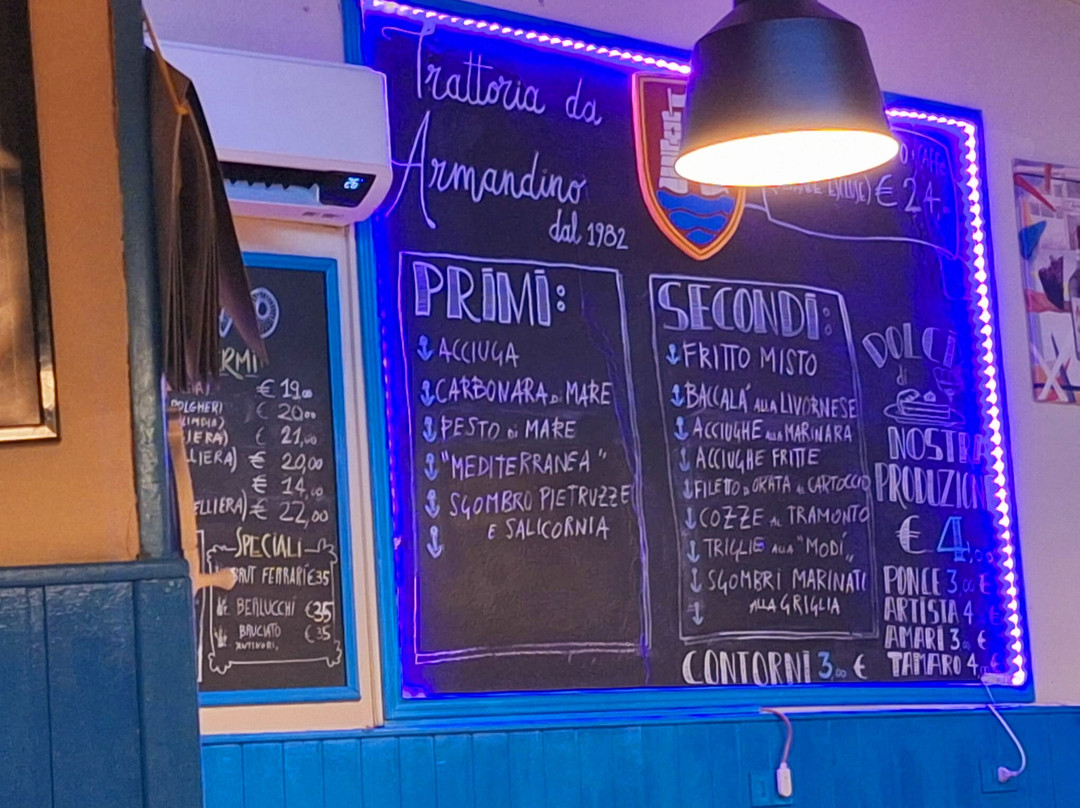 Trattoria da
Armandino
dal 1982
€ 24
PRIMI:
ACCIUGA
CARBONARA DI MARE
PESTO DI MARE
"MEDITERRANEA"
SGOMBRO PIETRUZZE
E SALICORNIA
SECONDI:
FRITTO MISTO
BACCALA' ALLA LIVORNESE
ACCIUGHE ALLA MARINARA
ACCIUGHE FRITTE
FILETTO DI ORATA AL CARTOCCIO
COZZE AL TRAMONTO
TRIGLIE ALLA "MODÍ"
SGOMBRI MARINATI
ALLA GRIGLIA
CONTORNI 3,00 €
DOLCI
di
NOSTRA
PRODUZION
€ 4,00
PONCE 3,00 €
ARTISTA 4
AMARI 3,00 €
TAMARO 4,00 €
26
€ 19,00
€ 20,00
€ 21,00
LLIERA) € 20,00
€ 14,00
ELLIERA) € 22,00
SPECIALI
BRUT FERRARI €35
BERLUCCHI €35
€35